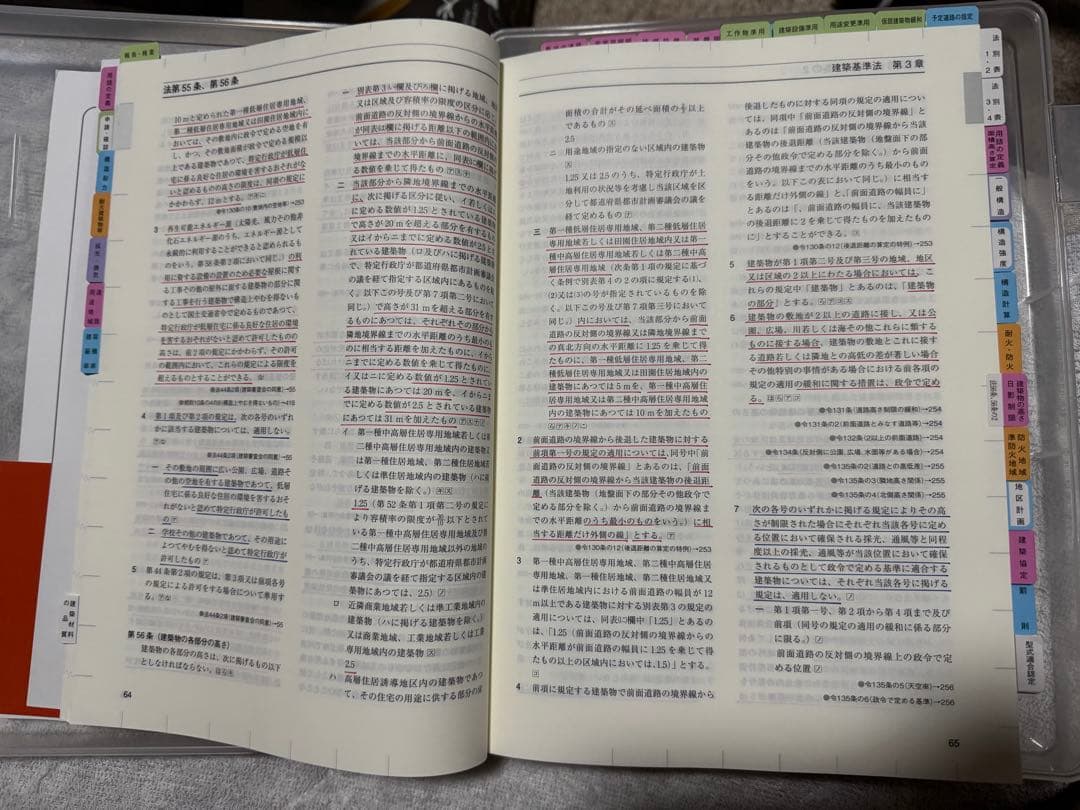 工作物準用
建築設備準用
用途変更準用
仮設建築物緩和
予定道路の指定
報告・検査
用語の定義
申請・確認
構造耐力
耐火建築物等
採光・換気
道路
用途地域
建築材料の品質
法第55条、第56条
10mと定められた第一種低層住居専用地域、
第二種低層住居専用地域又は田園住居地域内に
おいては、その敷地内に政令で定める空地を有
し、かつ、その敷地面積が政令で定める規模以
上である建築物であつて、特定行政庁が低層住
宅に係る良好な住居の環境を害するおそれがな
いと認めるものの高さの限度は、同項の規定に
かかわらず、12mとする。
●令130条の10(敷地内の空地等)→253
3 再生可能エネルギー源(太陽光、風力その他非
化石エネルギー源のうち、エネルギー源として
永続的に利用することができると認められるも
のをいう。第58条第2項において同じ。)の利
用に資する設備の設置のため必要な屋根に関す
る工事その他の屋外に面する建築物の部分に関
する工事を行う建築物で構造上やむを得ないも
のとして国土交通省令で定めるものであつて、
特定行政庁が低層住宅に係る良好な住居の環境
を害するおそれがないと認めて許可したものの
高さは、前2項の規定にかかわらず、その許可
の範囲内において、これらの規定による限度を
超えるものとすることができる。
●法44条2項(建築審査会の同意)→55
4 第1項及び第2項の規定は、次の各号のいずれ
かに該当する建築物については、適用しない。
●法44条2項(建築審査会の同意)→55
一 その敷地の周囲に広い公園、広場、道路そ
の他の空地を有する建築物であつて、低層
住宅に係る良好な住居の環境を害するおそ
れがないと認めて特定行政庁が許可したも
の
二 学校その他の建築物であつて、その用途に
よつてやむを得ないと認めて特定行政庁が
許可したもの
5 第44条第2項の規定は、第3項又は前項各号
の規定による許可をする場合について準用す
る。
●法44条2項(建築審査会の同意)→55
第56条(建築物の各部分の高さ)
建築物の各部分の高さは、次に掲げるもの以下
としなければならない。
64
一 別表第3(い)欄及び(ろ)欄に掲げる地域、地
又は区域及び容積率の限度の区分に応じ
前面道路の反対側の境界線からの水平距
が同表(は)欄に掲げる距離以下の範囲内に
いては、当該部分から前面道路の反対側の
境界線までの水平距離に、同表(に)欄に掲げ
る数値を乗じて得たもの
二 当該部分から隣地境界線までの水平距離
に、次に掲げる区分に従い、イ若しくはニ
に定める数値が1.25とされている建築物
で高さが20mを超える部分を有するもの
又はイからニまでに定める数値が2.5とさ
れている建築物(ロ及びハに掲げる建築物
で、特定行政庁が都道府県都市計画審議会
の議を経て指定する区域内にあるものを除
く。以下この号及び第7項第二号において
同じ。)で高さが31mを超える部分を有す
るものにあつては、それぞれその部分から
隣地境界線までの水平距離のうち最小のも
のに相当する距離を加えたものに、イから
ニまでに定める数値を乗じて得たものに、
イ又はニに定める数値が1.25とされている
建築物にあつては20mを、イからニまで
に定める数値が2.5とされている建築物に
あつては31mを加えたもの
イ 第一種中高層住居専用地域若しくは第
二種中高層住居専用地域内の建築物又
は第一種住居地域、第二種住居地域若
しくは準住居地域内の建築物(ハに掲
げる建築物を除く。)
1.25(第52条第1項第二号の規定に
より容積率の限度が30/10以下とされて
いる第一種中高層住居専用地域及び第
二種中高層住居専用地域以外の地域の
うち、特定行政庁が都道府県都市計画
審議会の議を経て指定する区域内の建
築物にあつては、2.5)
ロ 近隣商業地域若しくは準工業地域内の
建築物(ハに掲げる建築物を除く。)
又は商業地域、工業地域若しくは工業
専用地域内の建築物
2.5
ハ 高層住居誘導地区内の建築物であつ
て、その住宅の用途に供する部分の床
建築基準法 第3章
面積の合計がその延べ面積の2/3以上
であるもの
2.5
ニ 用途地域の指定のない区域内の建築物
1.25又は2.5のうち、特定行政庁が土
地利用の状況等を考慮し当該区域を区
分して都道府県都市計画審議会の議を
経て定めるもの
三 第一種低層住居専用地域、第二種低層住居
専用地域若しくは田園住居地域内又は第一
種中高層住居専用地域若しくは第二種中高
層住居専用地域(次条第1項の規定に基づ
く条例で別表第4の2の項に規定する(1)、
(2)又は(3)の号が指定されているものを除
く。以下この号及び第7項第三号において
同じ。)内においては、当該部分から前面
道路の反対側の境界線又は隣地境界線まで
の真北方向の水平距離に1.25を乗じて得
たものに、第一種低層住居専用地域、第二
種低層住居専用地域又は田園住居地域内の
建築物にあつては5mを、第一種中高層住
居専用地域又は第二種中高層住居専用地域
内の建築物にあつては10mを加えたもの
2 前面道路の境界線から後退した建築物に対する
前項第一号の規定の適用については、同号中「前
面道路の反対側の境界線」とあるのは、「前面
道路の反対側の境界線から当該建築物の後退距
離(当該建築物(地盤面下の部分その他政令で
定める部分を除く。)から前面道路の境界線ま
での水平距離のうち最小のものをいう。)に相
当する距離だけ外側の線」とする。
●令130条の12(後退距離の算定の特例)→253
3 第一種中高層住居専用地域、第二種中高層住居
専用地域、第一種住居地域、第二種住居地域又
は準住居地域内における前面道路の幅員が12
m以上である建築物に対する別表第3の規定の
適用については、同表(に)欄中「1.25」とあるの
は、「1.25(前面道路の反対側の境界線からの
水平距離が前面道路の幅員に1.25を乗じて得
たもの以上の区域内においては、1.5)」とする。
4 前項に規定する建築物で前面道路の境界線から
後退したものに対する同項の規定の適用につい
ては、同項中「前面道路の反対側の境界線」と
あるのは「前面道路の反対側の境界線から当該
建築物の後退距離(当該建築物(地盤面下の部
分その他政令で定める部分を除く。)から前面
道路の境界線までの水平距離のうち最小のもの
をいう。以下この表において同じ。)に相当す
る距離だけ外側の線」と、「前面道路の幅員に」
とあるのは、「前面道路の幅員に、当該建築物
の後退距離に2を乗じて得たものを加えたもの
に」とすることができる。
●令130条の12(後退距離の算定の特例)→253
5 建築物が第1項第二号及び第三号の地域、地区
又は区域の2以上にわたる場合においては、こ
れらの規定中「建築物」とあるのは、「建築物
の部分」とする。
6 建築物の敷地が2以上の道路に接し、又は公
園、広場、川若しくは海その他これらに類する
ものに接する場合、建築物の敷地とこれに接す
る道路若しくは隣地との高低の差が著しい場合
その他特別の事情がある場合における前各項の
規定の適用の緩和に関する措置は、政令で定め
る。
●令131条(道路高さ制限の緩和)→254
●令131条の2(前面道路とみなす道路等)→254
●令132条(2以上の前面道路)→254
●令134条(反対側に公園、広場、水面等がある場合)→254
●令135条の2(道路との高低差)→255
●令135条の3(隣地高さ関係)→255
●令135条の4(北側高さ関係)→255
7 次の各号のいずれかに掲げる規定によりその高
さが制限された場合にそれぞれ当該各号に定め
る位置において確保される採光、通風等と同程
度以上の採光、通風等が当該位置において確保
されるものとして政令で定める基準に適合する
建築物については、それぞれ当該各号に掲げる
規定は、適用しない。
一 第1項第一号、第2項から第4項まで及び
前項(同号の規定の適用の緩和に係る部分
に限る。)
前面道路の反対側の境界線上の政令で定
める位置
●令135条の5(天空率)→256
●令135条の6(政令で定める基準)→256
65
法別表1・2
法別表3・4
用語の定義
面積高さ算定
一般構造
構造強度
構造計算
耐火・防火
建築物の高さ
日影制限
法56条、56条の2
防火地域
準防火地域
地区計画
建築協定
罰則
型式適合認定